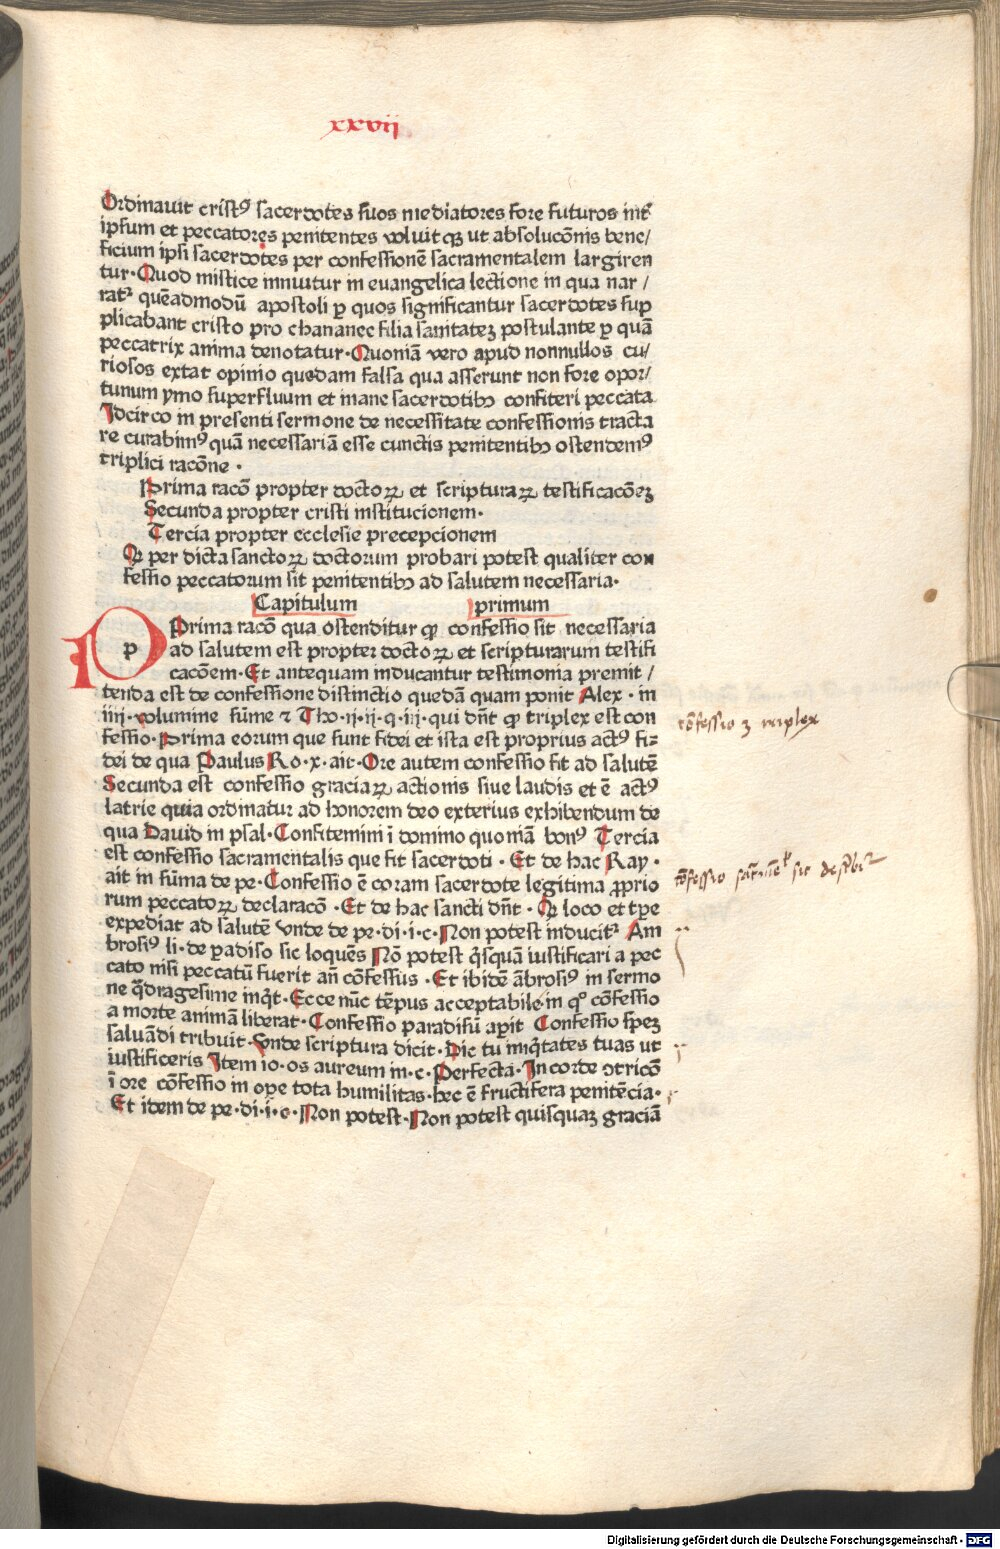 xxvii
Ordinauit cristꝰ sacerdotes suos mediatores fore futuros int̄
ipsum et peccatores penitentes voluit qꝫ ut absolucōnis bene/
ficium ipsi sacerdotes per confessionē sacramentalem largiren
tur·Quod mistice innuitur in euangelica lectione in qua nar/
rat᷑ quēadmodū apostoli ꝑ quos significantur sacerdotes sup
plicabant cristo pro chananee filia sanitateꝫ postulante ꝑ quā
peccatrix anima denotatur·Quoniā vero apud nonnullos cu/
riosos extat opinio quedam falsa qua asserunt non fore opor/
tunum ymo superfluum et inane sacerdotibꝫ confiteri peccata
Idcirco in presenti sermone de necessitate confessionis tracta
re curabimꝰ quā necessariā esse cunctis penitentibꝫ ostendemꝰ
triplici racōne·
Prima racō propter doctoꝝ et scripturaꝝ testificacōeꝫ
Secunda propter cristi institucionem·
Tercia propter ecclesie precepcionem
Qꝫ per dicta sanctoꝝ doctorum probari potest qualiter con
fessio peccatorum sit penitentibꝫ ad salutem necessaria·
Capitulum primum
p Prima racō qua ostenditur ꝙ confessio sit necessaria
ad salutem est propter doctoꝝ et scripturarum testifi
cacōem·Et antequam inducantur testimonia premit/
tenda est de confessione distinctio quedā quam ponit Alex·in
iiii·volumine sūme ⁊ Tho·ii·ii·q·iii·qui dn̄t ꝙ triplex est con
fessio·Prima eorum que sunt fidei et ista est proprius actꝰ fi⸗
dei de qua Paulus Ro·x·ait·Ore autem confessio fit ad salutē
Secunda est confessio graciaꝝ actionis siue laudis et ē actꝰ
latrie quia ordinatur ad honorem deo exterius exhibendum de
qua Dauid in psal·Confitemini ī domino quoniā bonꝰ Tercia
est confessio sacramentalis que fit sacerdoti·Et de hac Ray·
ait in sūma de pe·Confessio ē coram sacerdote legitima ꝓprio
rum peccatoꝝ declaracō·Et de hac sancti dn̄t·Qꝫ loco et tꝑe
expediat ad salutē vnde de pe·di·i·c·Non potest inducit᷑ Am
brosiꝰ li·de ꝑadiso sic loquēs Nō potest q̄squā iustificari a pec
cato nisi peccatū fuerit an̄ cōfessus·Et ibidē ābrosiꝰ in sermo
ne q̄dragesime inq̄t·Ecce nūc tēpus acceptabile in qͦ cōfessio
a morte animā liberat·Confessio paradisū aꝑit Confessio speꝫ
saluādi tribuit·Vnde scriptura dicit·Dic tu iniq̄tates tuas ut
iustificeris Item io·os aureum in·c·Perfecta·In corde ꝯtricō
ī ore cōfessio in oꝑe tota humilitas·hec ē fructifera penitēcia·
Et idem de pe·di·i·c·Non potest·Non potest quisquaꝫ graciā
cōfessio ꝫ triplex
Digitalisierung gefördert durch die Deutsche Forschungsgemeinschaft - DFG